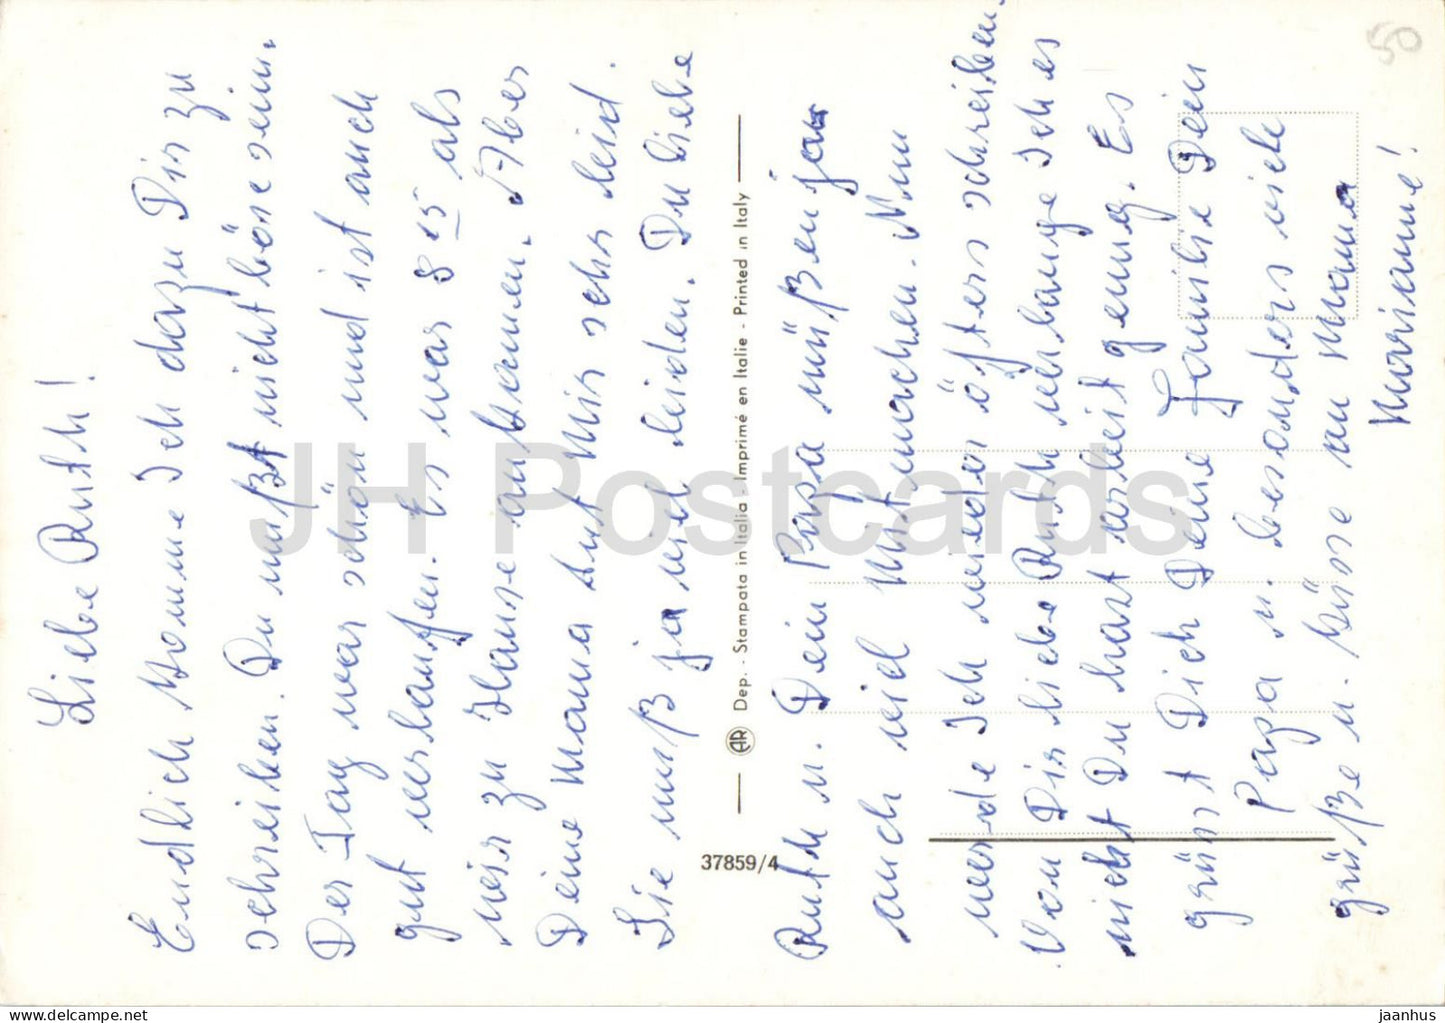 Liebe Ruth!
Endlich komme Ich dazu Dir zu
schreiben. Du mußt nicht böse sein.
Der Tag war schön und ist auch
gut verlaufen. Es war 8 15 als
wir zu Hause ankamen. Aber
Deine Mama tut Mir sehr leid.
Sie muß ja viel leiden. Du liebe
Ruth u. Dein Papa müßen ja
auch viel Mitmachen. Nun
werde Ich wieder öfters schreiben.
Von Dir liebe Ruth verlange Ich es
nicht Du hast arbeit genug. Es
grüst Dich Deine Familie Dein
Papa u. besonders viele
grüße u. küsse an Mama
Marianne!
50
AR Dep. - Stampata in Italia - Imprimé en Italie - Printed in Italy
37859/4
JH Postcards
www.delcampe.net
jaanhus